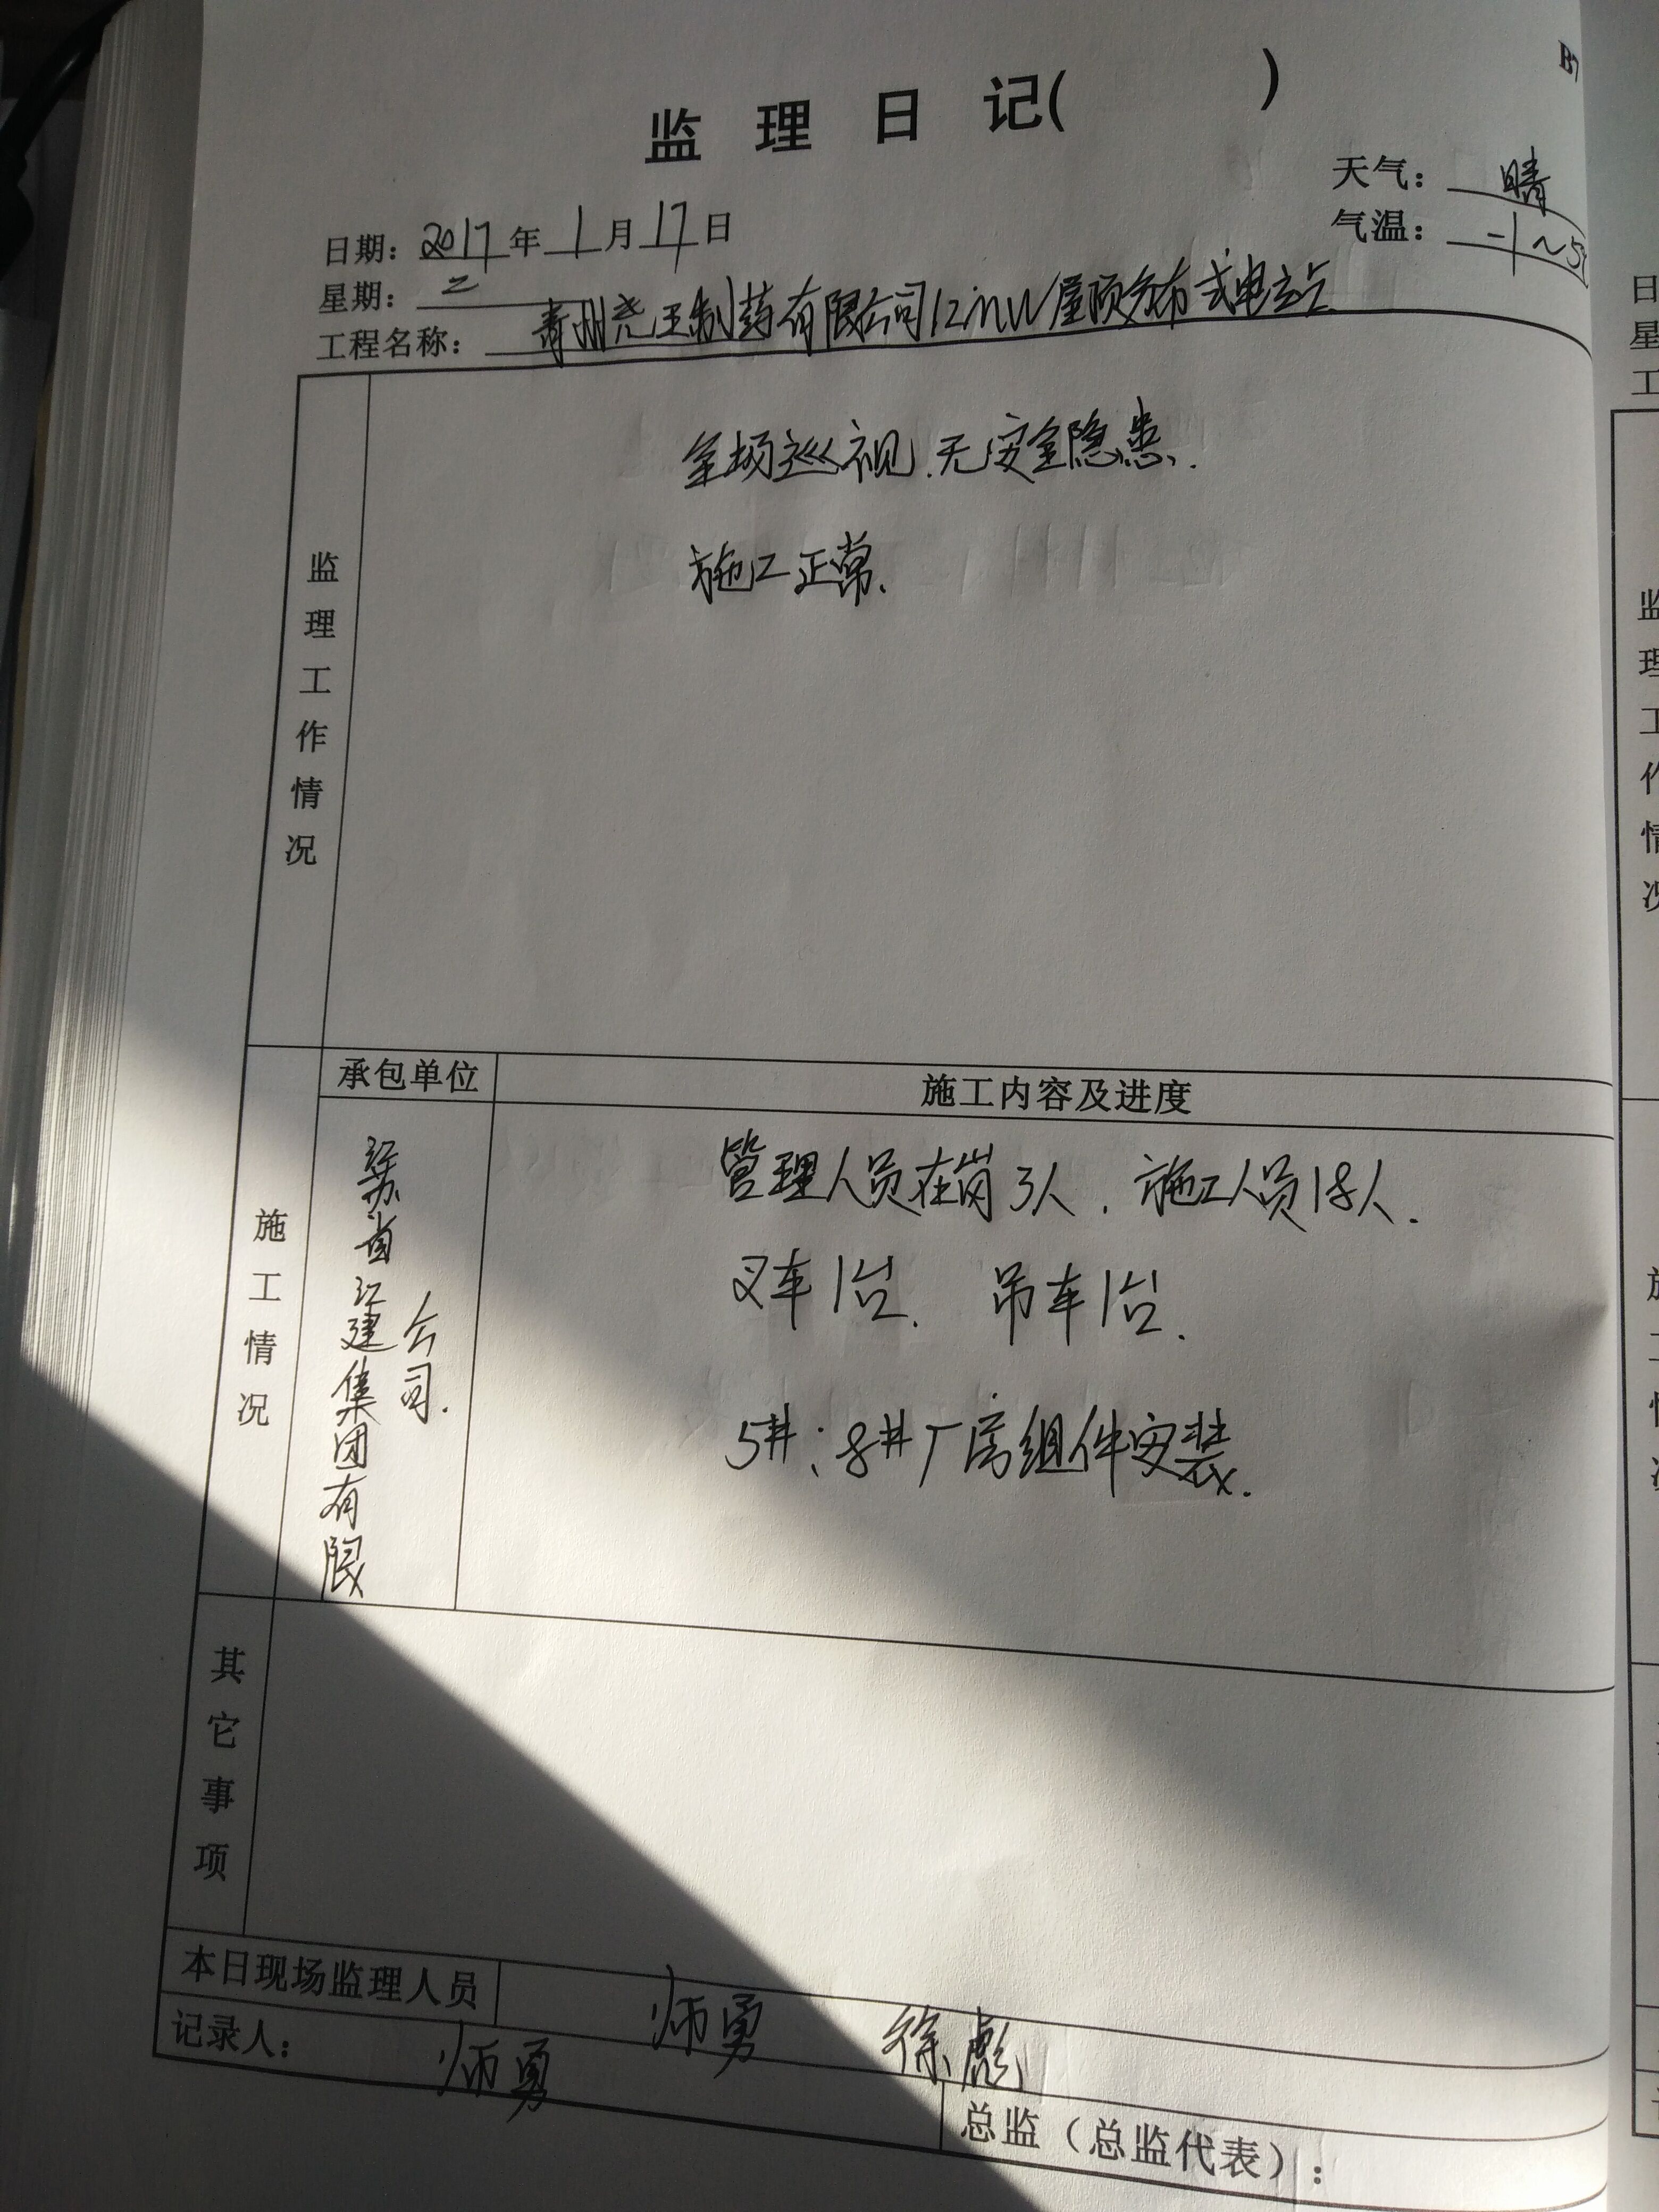 B7
监 理 日 记( )
天气: 晴
日期: 2017 年 1 月 17 日
气温: -1~5
星期: 二
工程名称: 青州尧王制药有限公司12mW屋顶分布式电站
监理工作情况
全场巡视.无安全隐患.
施工正常.
施工情况
承包单位
施工内容及进度
江苏省江建集团有限
公司.
管理人员在岗3人, 施工人员18人.
叉车1台. 吊车1台.
5#;8#厂房组件安装.
其它事项
本日现场监理人员
师勇 徐彪
记录人: 师勇
总监（总监代表）: